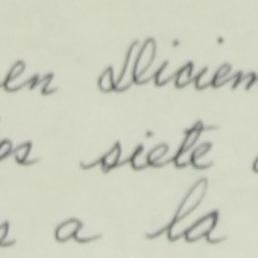 en Diciem
os siete
s a la